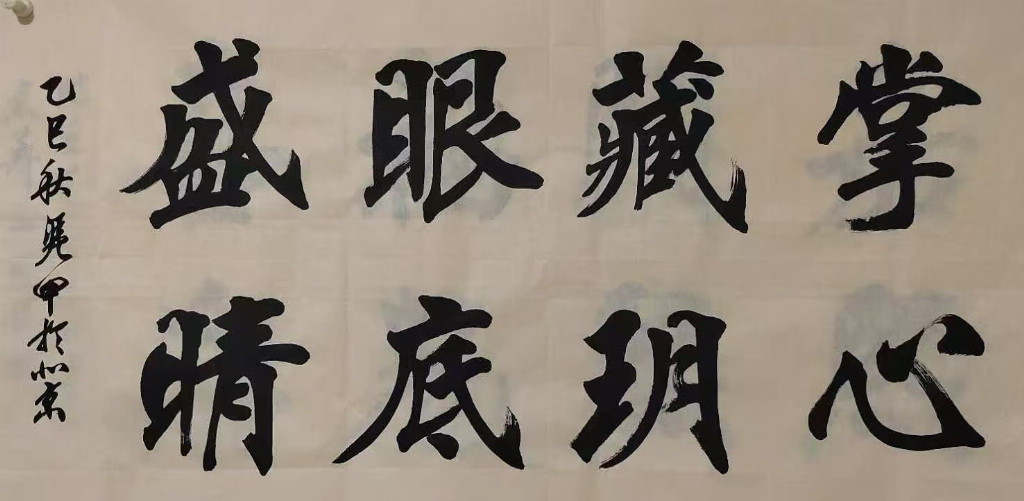 掌心
藏玥
眼底
盛晴
乙巳秋晁甲於北京